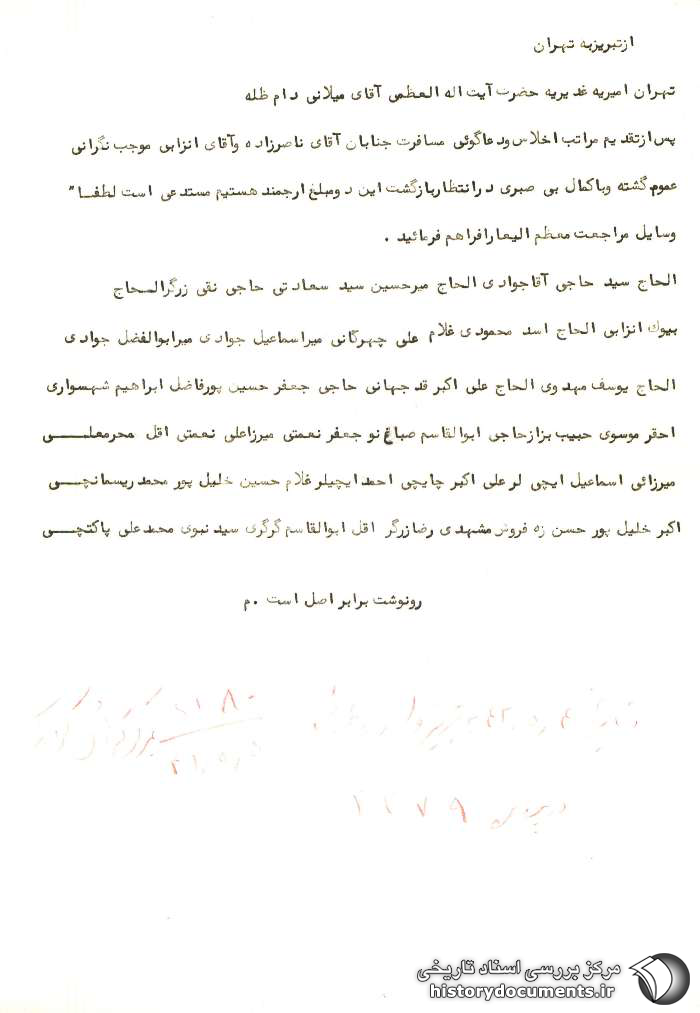 ازتبریزبه تهران
تهران امیریه غدیریه حضرت آیت اله العظمی آقای میلانی دام ظله
پس ازتقدیم مراتب اخلاس ودعاگوئی مسافرت جنابان آقای ناصرزاده وآقای انزابی موجب نگرانی
عموم گشته وباکمال بی صبری درانتظاربازگشت این دومبلغ ارجمند هستیم مستدعی است لطفا"
وسایل مراجعت معظم الیهارافراهم فرمائید .
الحاج سید حاجی آقاجوادی الحاج میرحسین سید سعادتی حاجی نقی زرگرالحاج
بیوک انزابی الحاج اسد محمودی غلام علی چهرگانی میراسماعیل جوادی میرابوالفضل جوادی
الحاج یوسف مهدوی الحاج علی اکبر قدجهانی حاجی جعفر حسین پورفاضل ابراهیم شهسواری
احقر موسوی حبیب بزازحاجی ابوالقاسم صباغ نو جعفر نعمتی میرزاعلی نعمتی اقل محرمعلی
میرزائی اسماعیل ایچی لر علی اکبر چایچی احمد ایچیلر غلام حسین خلیل پور محمد ریسمانچی
اکبر خلیل پور حسن زه فروش مشهدی رضازرگر اقل ابوالقاسم گرگری سید نبوی محمدعلی پاکتچی
رونوشت برابراصل است .م
مرکز بررسی اسناد تاریخی
historydocuments.ir